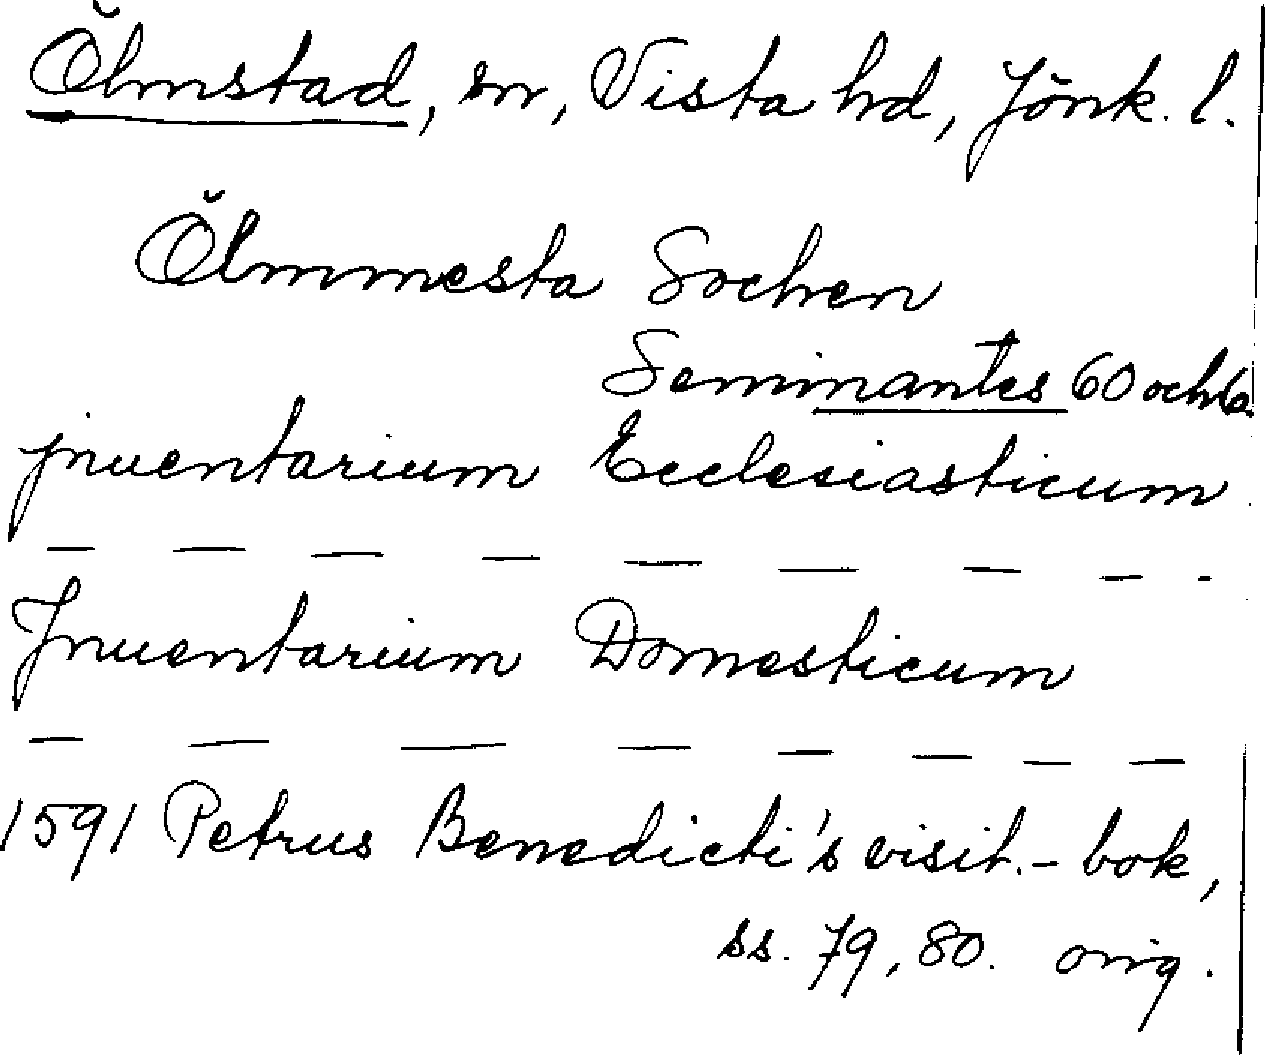 Ölmstad, sn, Vista hd, Jönk. l.
Ölmmesta Sochen
Seminantes 60 och
jnuentarium Ecclesiasticum
— — — — — — — — -
Jnuentarium Domesticum
— — — — — — — —
1591 Petrus Benedicti's visit.- bok,
ss. 79, 80. orig.